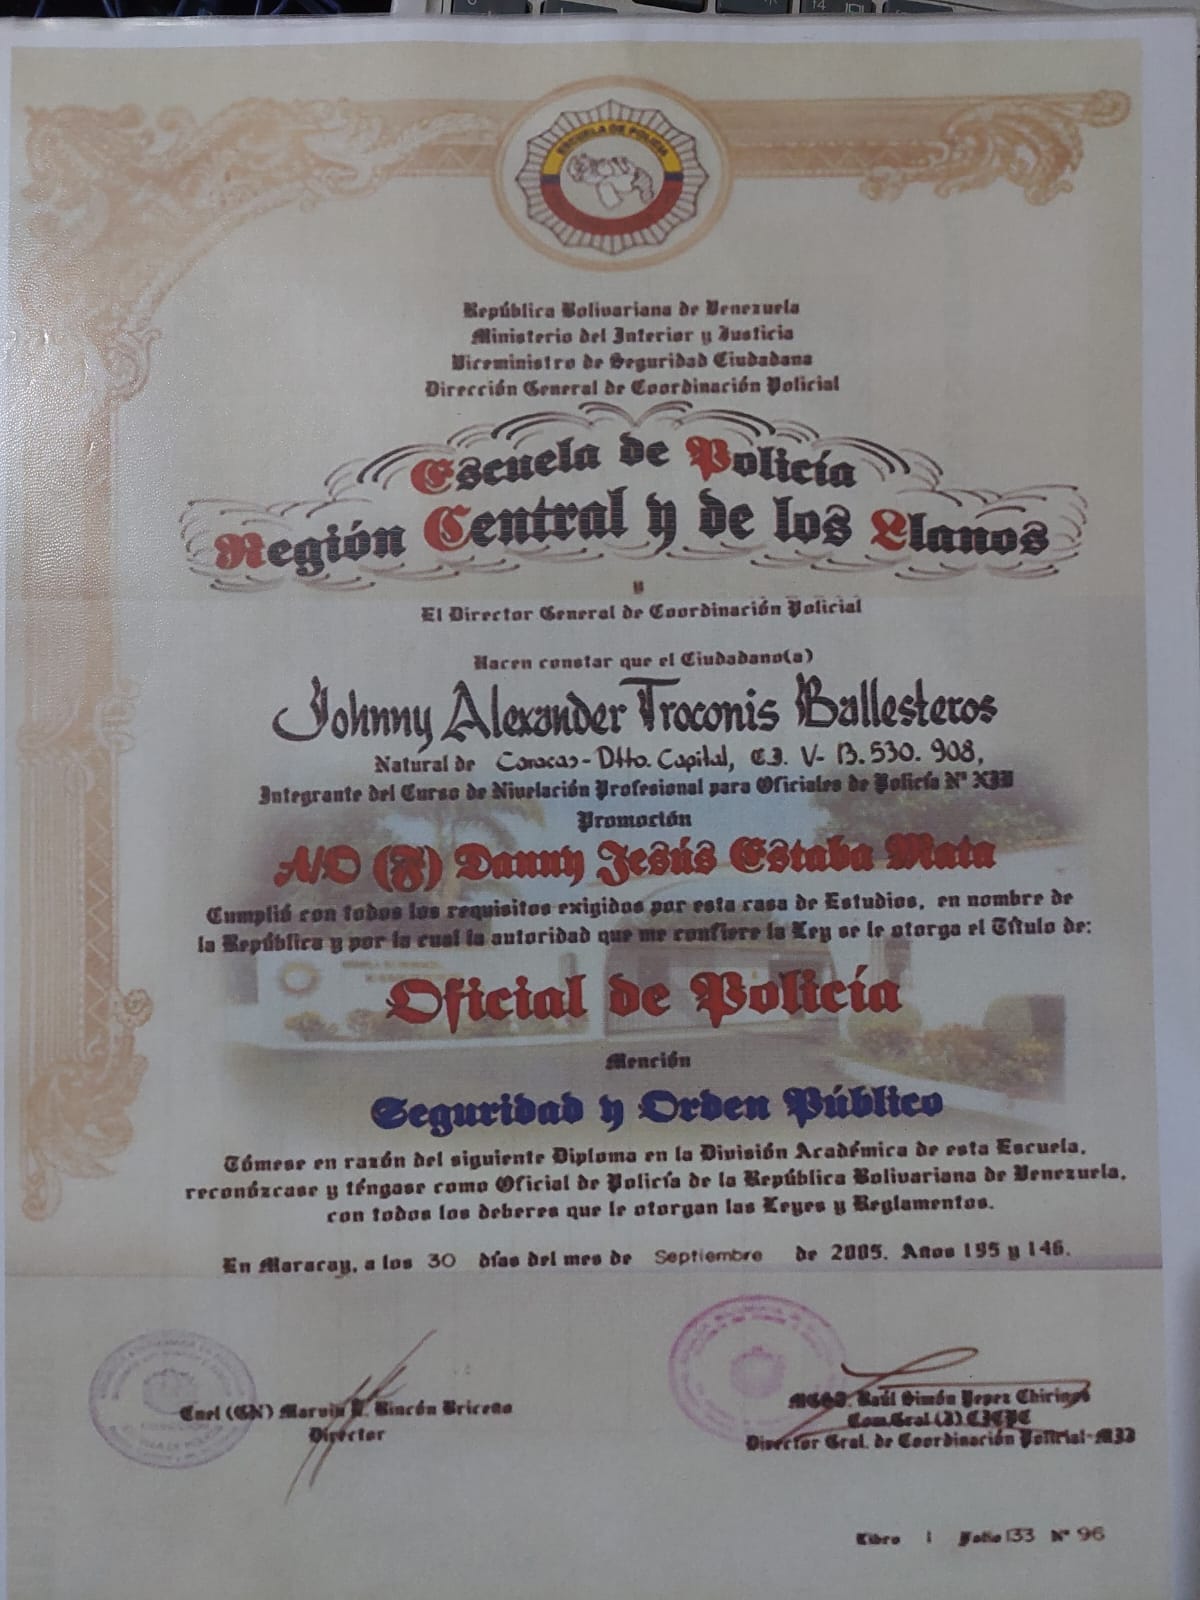 ESCUELA DE POLICIA
República Bolivariana de Venezuela
Ministerio del Interior y Justicia
Viceministro de Seguridad Ciudadana
Dirección General de Coordinación Policial
Escuela de Policía
Región Central y de los Llanos
y
El Director General de Coordinación Policial
Hacen constar que el Ciudadano(a)
Johnny Alexander Troconis Ballesteros
Natural de Caracas - Dtto. Capital, C.I. V- 13.530.908,
Integrante del Curso de Nivelación Profesional para Oficiales de Policía Nº
Promoción
A/O (F) Danny Jesús Estaba Mata
Cumplió con todos los requisitos exigidos por esta casa de Estudios, en nombre de
la República y por la cual la autoridad que me confiere la Ley se le otorga el Título de:
Oficial de Policía
Mención
Seguridad y Orden Público
Tómese en razón del siguiente Diploma en la División Académica de esta Escuela,
reconózcase y téngase como Oficial de Policía de la República Bolivariana de Venezuela,
con todos los deberes que le otorgan las Leyes y Reglamentos.
En Maracay, a los 30 días del mes de Septiembre de 2005. Años 195 y 146.
Cnel (GN) Marvin Rincón Briceño
Director
Raúl Simón Yepez Chirinos
Com.Gral.(J).CICPC
Director Gral. de Coordinación Policial-MIJ
Libro 1 Folio 133 Nº 96